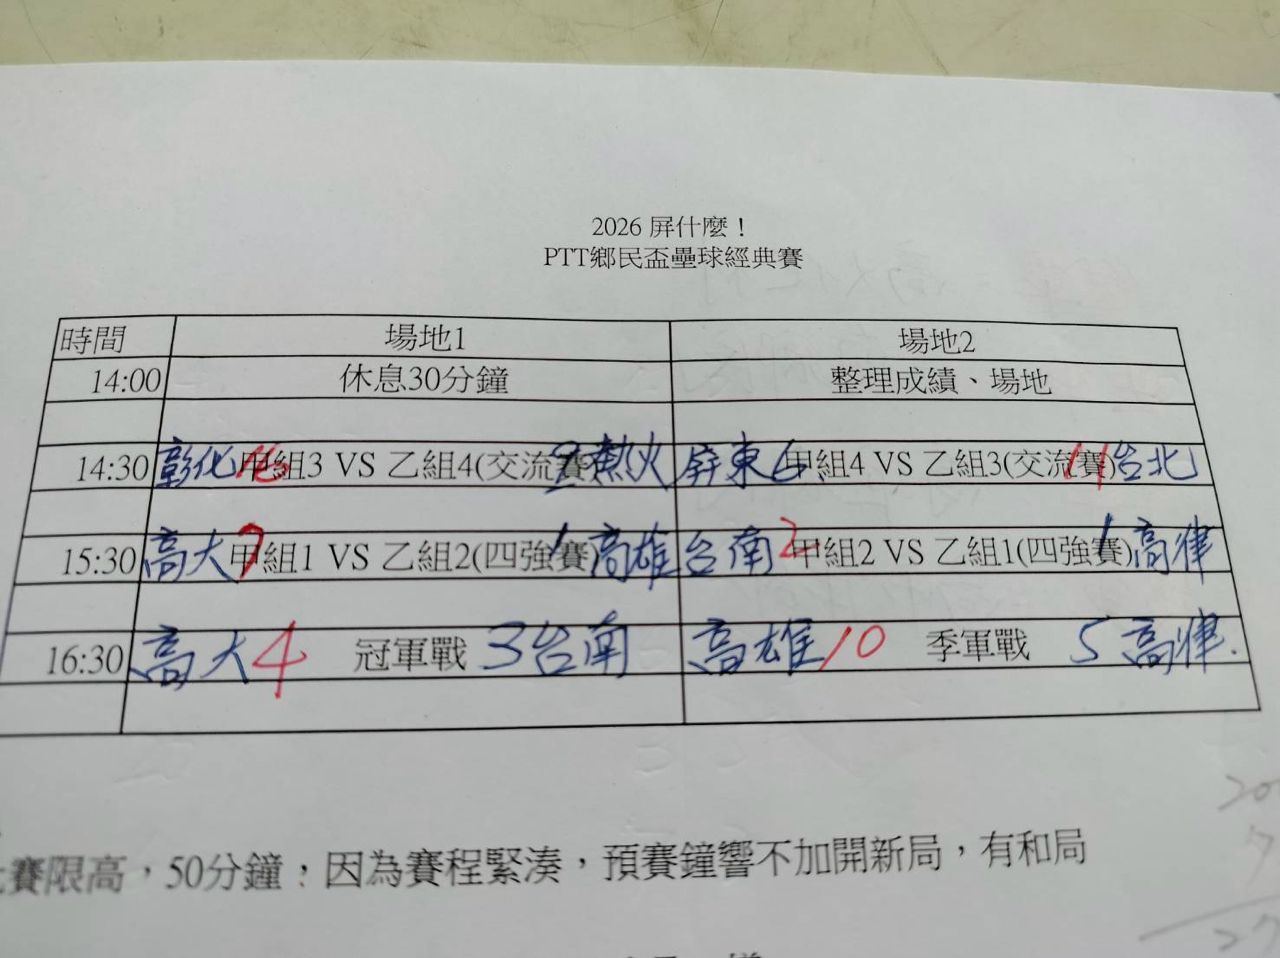 2026 屏什麼！
PTT鄉民盃壘球經典賽
時間 場地1 場地2
14:00 休息30分鐘 整理成績、場地
14:30 彰化 16 甲組3 VS 乙組4(交流賽) 2 熱火 屏東 6 甲組4 VS 乙組3(交流賽) 11 台北
15:30 高大 7 甲組1 VS 乙組2(四強賽) 1 高雄 台南 2 甲組2 VS 乙組1(四強賽) 1 高律
16:30 高大 4 冠軍戰 3 台南 高雄 10 季軍戰 5 高律.
賽限高，50分鐘；因為賽程緊湊，預賽鐘響不加開新局，有和局
20
7
27